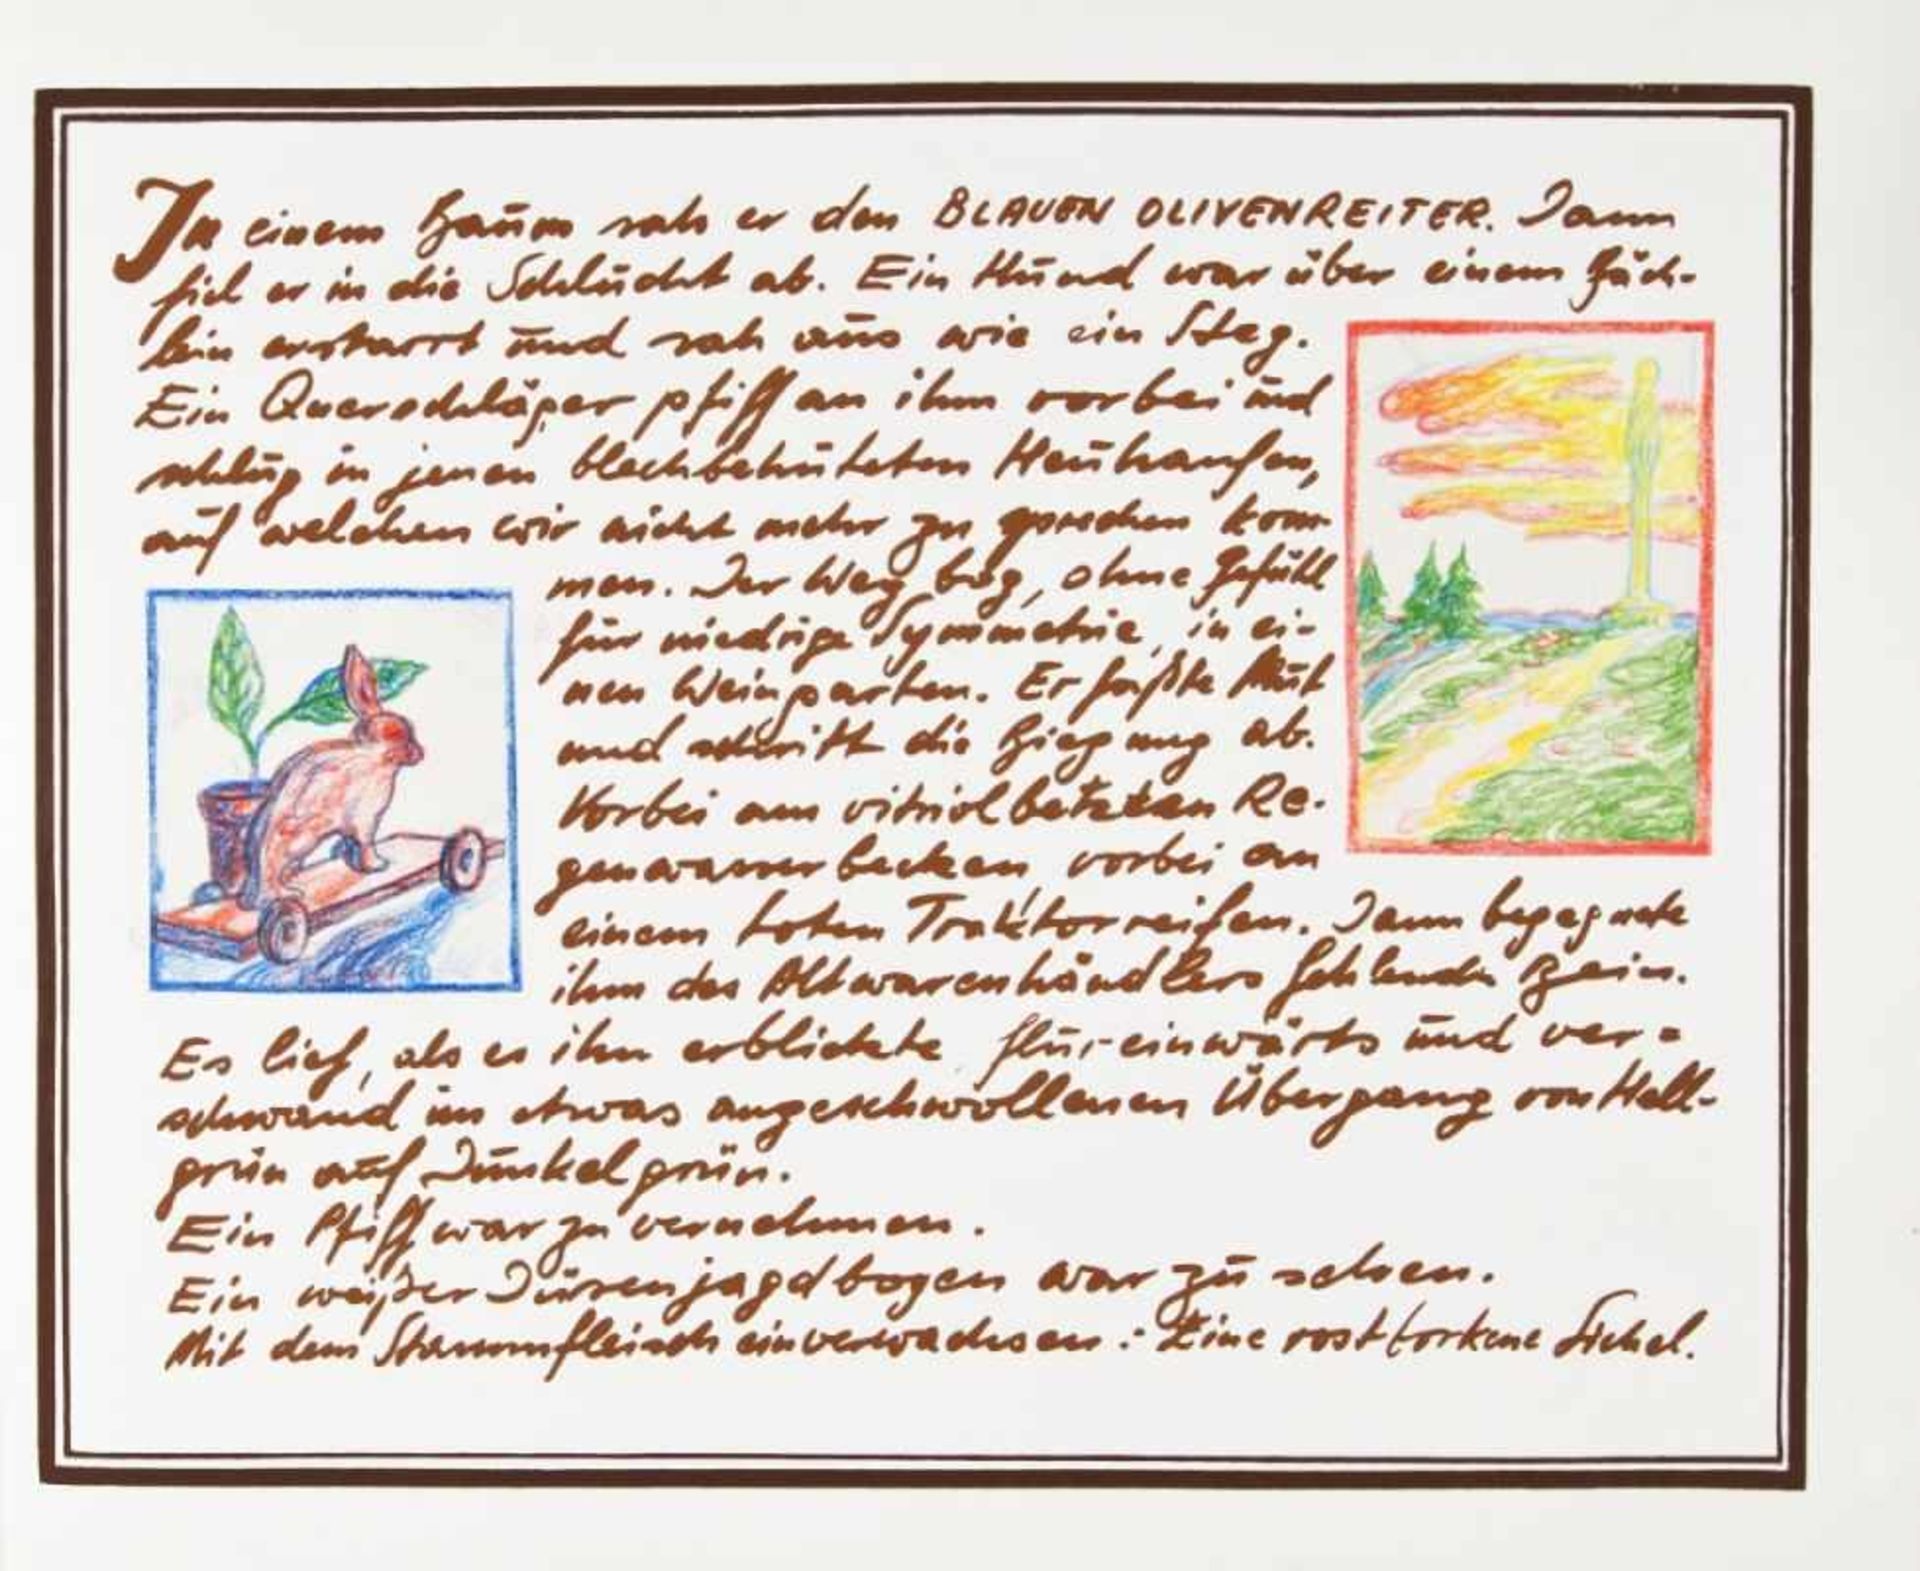 In einem Baum sah er den BLAUEN OLIVENREITER. Dann
fiel er in die Schlucht ab. Ein Hund war über einem Bäch-
lein erstarrt und sah aus wie ein Steg.
Ein Querschläger pfiff an ihm vorbei und
schlug in jenen blechbehüteten Heuhaufen,
auf welchen wir nicht mehr zu sprechen kom-
men. Der Weg bog, ohne Gefühl
für niedrige Symmetrie, in ei-
nen Weingarten. Er faßte Mut
und schritt die Biegung ab.
Vorbei am vitriolbetzten Re-
genwasserbecken, vorbei an
einem toten Traktorreifen. Dann begegnete
ihm des Altwarenhändlers fehlendes Bein.
Es lief, als es ihn erblickte flureinwärts und ver=
schwand im etwas angeschwollenen Übergang von Hell-
grün auf Dunkelgrün.
Ein Pfiff war zu vernehmen.
Ein weißer Dürrenjagdbogen war zu sehen.
Mit dem Stammfleisch einverwachsen: Eine Sichel.